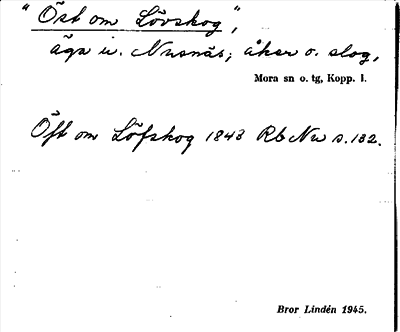 "Öst om Lövskog",
äga i. Nusnäs; åker o. slog,
Mora sn o. tg, Kopp. l.
Öft om Löfskog 1843 Rb Nu s.132.
Bror Lindén 1945.